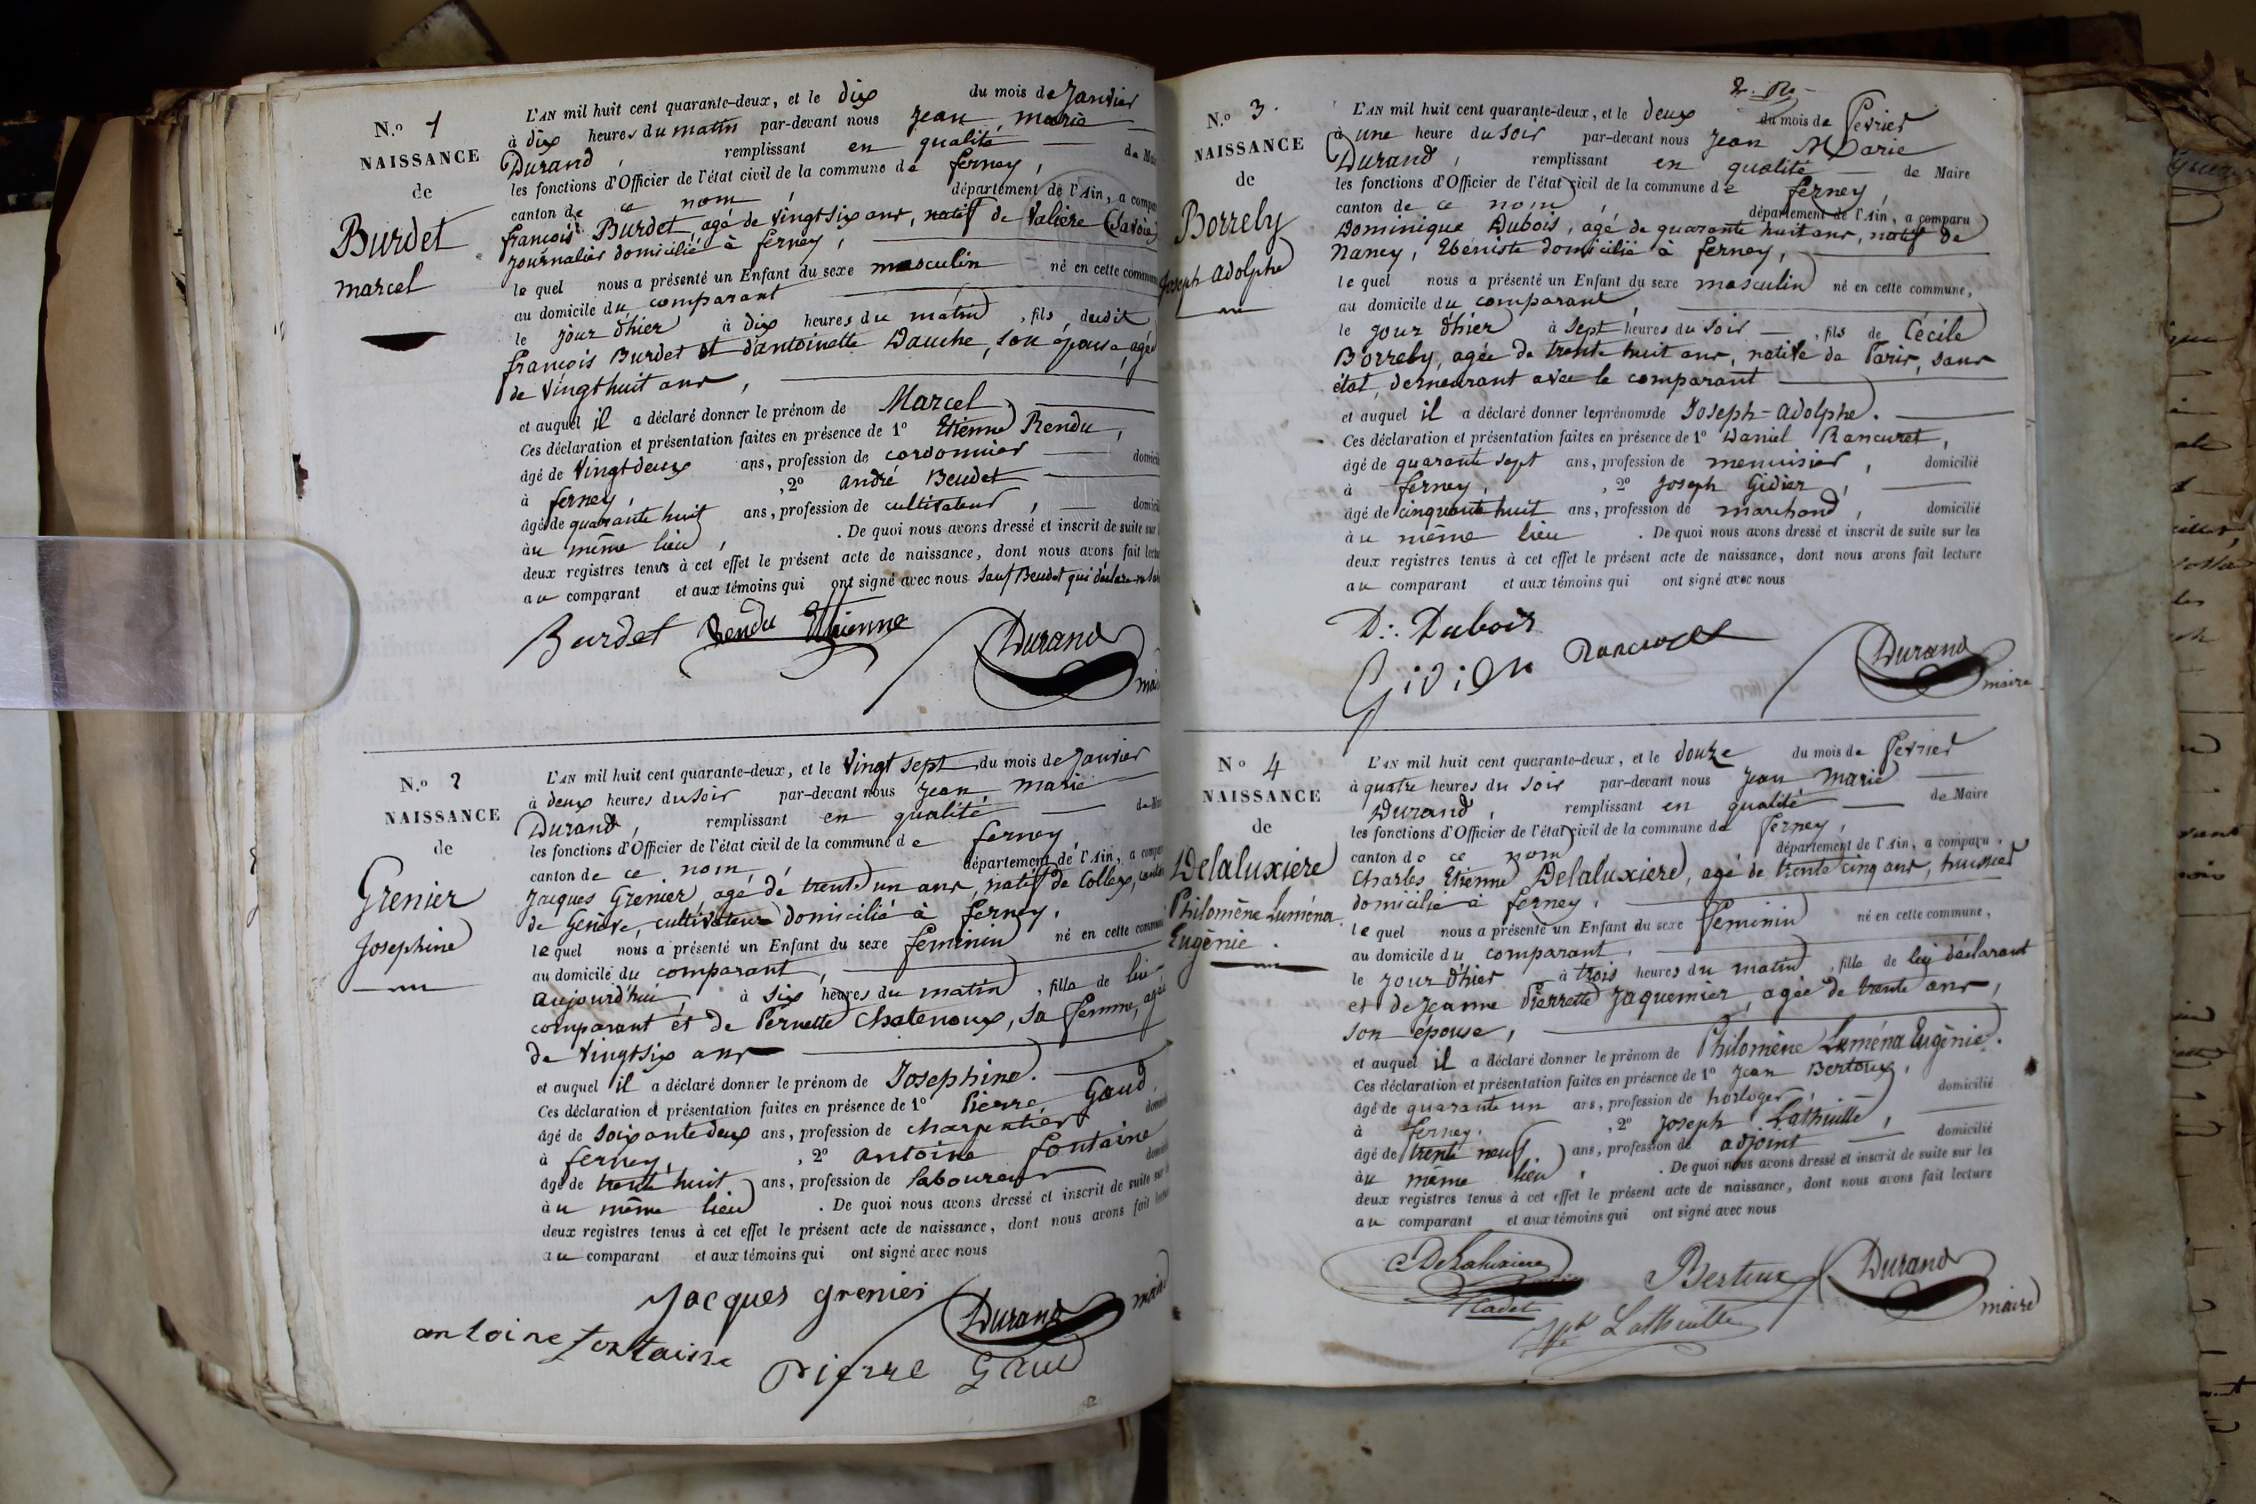 N.º 1
NAISSANCE
de
Burdet
marcel
L'AN mil huit cent quarante-deux, et le dix du mois de Janvier
à dix heures du matin par-devant nous Jean marie
Durand, remplissant en qualité de Mai
les fonctions d'Officier de l'état civil de la commune de ferney,
canton de ce nom, département de l'Ain, a compa
françois Burdet, agé de vingt six ans, natif de Valière (Savoie)
journalier domicilié à ferney,
le quel nous a présenté un Enfant du sexe masculin né en cette commun
au domicile du comparant
le jour d'hier à dix heures du matin, fils dudit
françois Burdet et d'antoinette Dauche, son épouse, agée
de vingt huit ans,
et auquel il a déclaré donner le prénom de Marcel
Ces déclaration et présentation faites en présence de 1º Etienne Rendu,
âgé de vingt deux ans, profession de cordonnier domicili
à ferney, , 2º andré Beudet
âgé de quarante huit ans, profession de cultivateur, domicil
à u même lieu, . De quoi nous avons dressé et inscrit de suite sur
deux registres tenus à cet effet le présent acte de naissance, dont nous avons fait lectu
au comparant et aux témoins qui ont signé avec nous sauf Beudet qui déclare ne
Burdet Rendu Etienne
Durand
mai
N.º 2
NAISSANCE
de
Grenier
Josephine
L'AN mil huit cent quarante-deux, et le vingt sept du mois de Janvier
à deux heures du soir par-devant nous Jean marie
Durand, remplissant en qualité de Mai
les fonctions d'Officier de l'état civil de la commune de ferney
canton de ce nom, département de l'Ain, a compa
Jaques Grenier, agé de trente un ans, natif de Collex, canton
de Genève, cultivateur domicilié à ferney.
le quel nous a présenté un Enfant du sexe féminin né en cette commun
au domicile du comparant,
aujourd'hui, à six heures du matin, fille de lui
comparant et de Pernette Chatenoux, sa femme, agée
de vingt six ans
et auquel il a déclaré donner le prénom de Josephine.
Ces déclaration et présentation faites en présence de 1º Pierre Gaud,
âgé de soixante deux ans, profession de charpentier domicili
à ferney, , 2º antoine fontaine
âgé de trente huit ans, profession de laboureur domicili
à u même lieu . De quoi nous avons dressé et inscrit de suite sur
deux registres tenus à cet effet le présent acte de naissance, dont nous avons fait lectu
au comparant et aux témoins qui ont signé avec nous
Jacques grenier
Durand
maire
antoine fontaine
Pierre Gaud
2. R.
N.º 3.
NAISSANCE
de
Borrely
Joseph adolphe
L'AN mil huit cent quarante-deux, et le deux du mois de fevrier
à une heure du soir par-devant nous Jean Marie
Durand, remplissant en qualité de Maire
les fonctions d'Officier de l'état civil de la commune de ferney,
canton de ce nom, département de l'Ain, a comparu
Dominique Dubois, agé de quarante huit ans, natif de
Nancy, Ebéniste domicilié à ferney,
le quel nous a présenté un Enfant du sexe masculin né en cette commune,
au domicile du comparant
le jour d'hier à sept heures du soir, fils de Cécile
Borrely, agée de trente huit ans, native de Paris, sans
état, demeurant avec le comparant
et auquel il a déclaré donner les prénoms de Joseph-adolphe.
Ces déclaration et présentation faites en présence de 1º Daniel Rancuret,
âgé de quarante sept ans, profession de menuisier, domicilié
à ferney, , 2º Joseph Gidier,
âgé de cinquante huit ans, profession de marchand, domicilié
à u même lieu . De quoi nous avons dressé et inscrit de suite sur les
deux registres tenus à cet effet le présent acte de naissance, dont nous avons fait lecture
au comparant et aux témoins qui ont signé avec nous
D.. Dubois
Durand
maire
Nº 4
NAISSANCE
de
Delaluxiere
Philomène Luména
Eugènie.
L'AN mil huit cent quarante-deux, et le douze du mois de fevrier
à quatre heures du soir par-devant nous Jean marie
Durand, remplissant en qualité de Maire
les fonctions d'Officier de l'état civil de la commune de ferney,
canton de ce nom département de l'Ain, a comparu
Charles Etienne Delaluxiere, agé de trente cinq ans, huissier
domicilié à ferney,
le quel nous a présenté un Enfant du sexe féminin né en cette commune,
au domicile du comparant,
le jour d'hier à trois heures du matin, fille de lui déclarant
et de Jeanne Pierrette Jaquemier, agée de trente ans,
son épouse,
et auquel il a déclaré donner le prénom de Philomène Luména Eugènie.
Ces déclaration et présentation faites en présence de 1º Jean Bertoux,
âgé de quarante un ans, profession de horloger, domicilié
à ferney, , 2º Joseph Lathuille,
âgé de trente neuf. ans, profession de adjoint domicilié
à u même lieu, . De quoi nous avons dressé et inscrit de suite sur les
deux registres tenus à cet effet le présent acte de naissance, dont nous avons fait lecture
au comparant et aux témoins qui ont signé avec nous
Delaluxiere
Cadet
Durand
maire
Lathuille